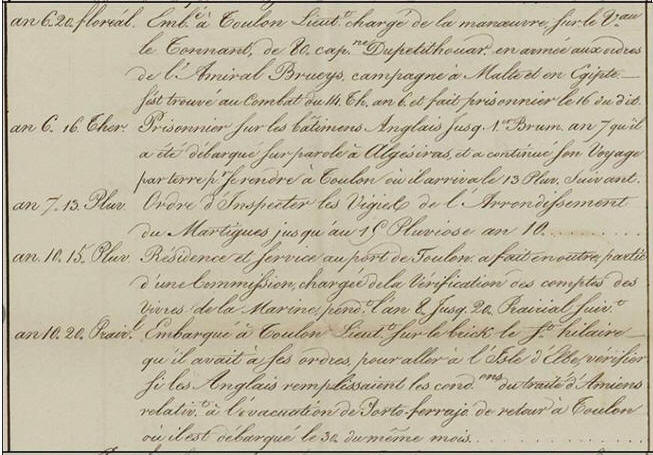 an 6. 20. floréal. Emb.é à Toulon Lieut.t chargé de la manœuvre, sur le V.au
le Tonnant, de 80. cap.ne Dupetithouar, en armée aux ordres
de l'Amiral Brueys, campagne à Malte et en Egipte
s'est trouvé au Combat du 14 Th. an 6. et fait prisonnier le 16 du dit.
an 6. 16. Ther. Prisonnier sur les bâtimens Anglais jusq. 1.er Brum. an 7 qu'il
a été débarqué sur parole à Algésiras, et a continué son Voyage
par terre p.r se rendre à Toulon où il arriva le 13 Pluv. Suivant.
an 7. 13. Pluv. Ordre d'Inspecter les Vigies de l'Arrondissement
du Martigues jusqu'au 15 Pluviose an 10
an. 10. 15. Pluv. Résidence et service au port de Toulon. a fait en outre, partie
d'une Commission, chargée de la Vérification des comptes des
Vivres de la Marine, pend.t l'an 8. Jusq. 20. Prairial suiv.t
an 10. 20. Prair.l Embarqué à Toulon Lieut.t sur le brick le S.t hilaire
qu'il avait à ses ordres, pour aller à l'Isle d'Elbe, vérifier
si les Anglais remplissaient les cond.ons du traité d'Amiens
relativ.t à l'évacuation de Porto-ferrajo. de retour à Toulon
où il est débarqué le 30. du même mois.